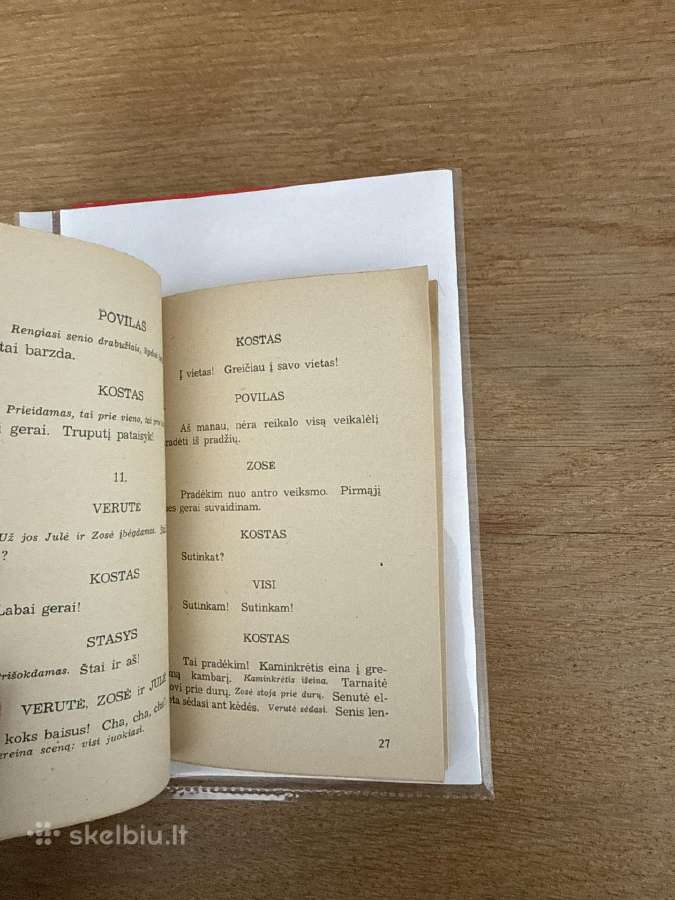 POVILAS
Rengiasi senio drabužiais,
tai barzda.
KOSTAS
Prieidamas, tai prie vieno, tai
gerai. Truputį pataisyk!
11.
VERUTĖ
Už jos Julė ir Zosė įbėgdamos.
?
KOSTAS
Labai gerai!
STASYS
Prišokdamas. Štai ir aš!
VERUTĖ, ZOSĖ ir JULĖ
koks baisus! Cha, cha, cha!
ereina sceną; visi juokiasi.
KOSTAS
Į vietas! Greičiau į savo vietas!
POVILAS
Aš manau, nėra reikalo visą veikalėlį
radėti iš pradžių.
ZOSĖ
Pradėkim nuo antro veiksmo. Pirmąjį
es gerai suvaidinam.
KOSTAS
Sutinkat?
VISI
Sutinkam! Sutinkam!
KOSTAS
Tai pradėkim! Kaminkrėtis eina į gre-
mą kambarį. Kaminkrėtis išeina. Tarnaitė
ovi prie durų. Zosė stoja prie durų. Senutė el-
eta sėdasi ant kėdės. Verutė sėdasi. Senis len-
27
skelbiu.lt